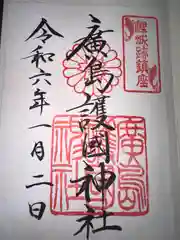 鯉城跡鎮座
廣島護國神社
廣島
護國
神社
令和六年一月二日